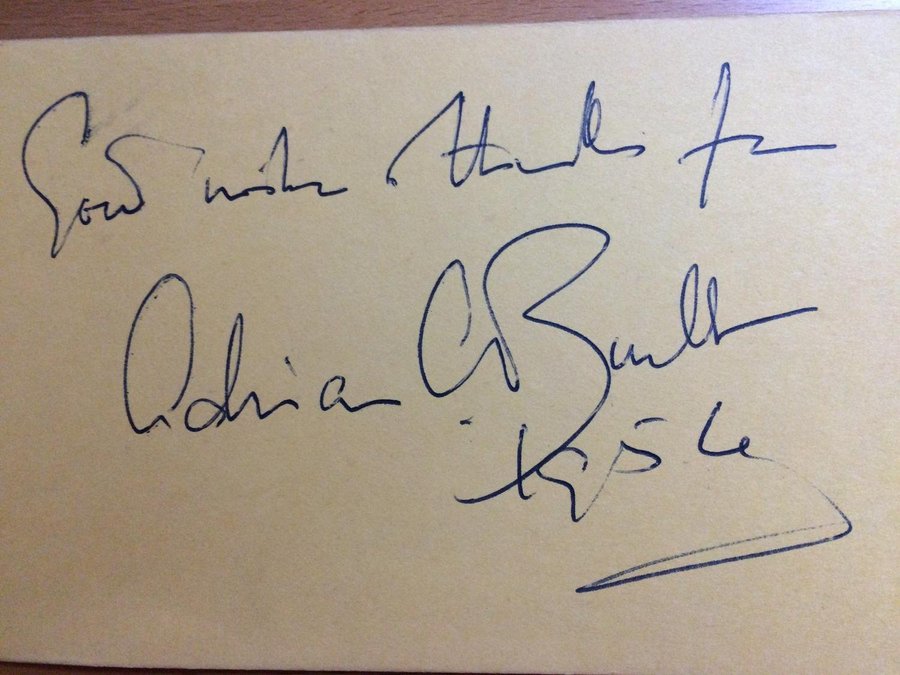 Good wishes thanks from
Adrian C Boult